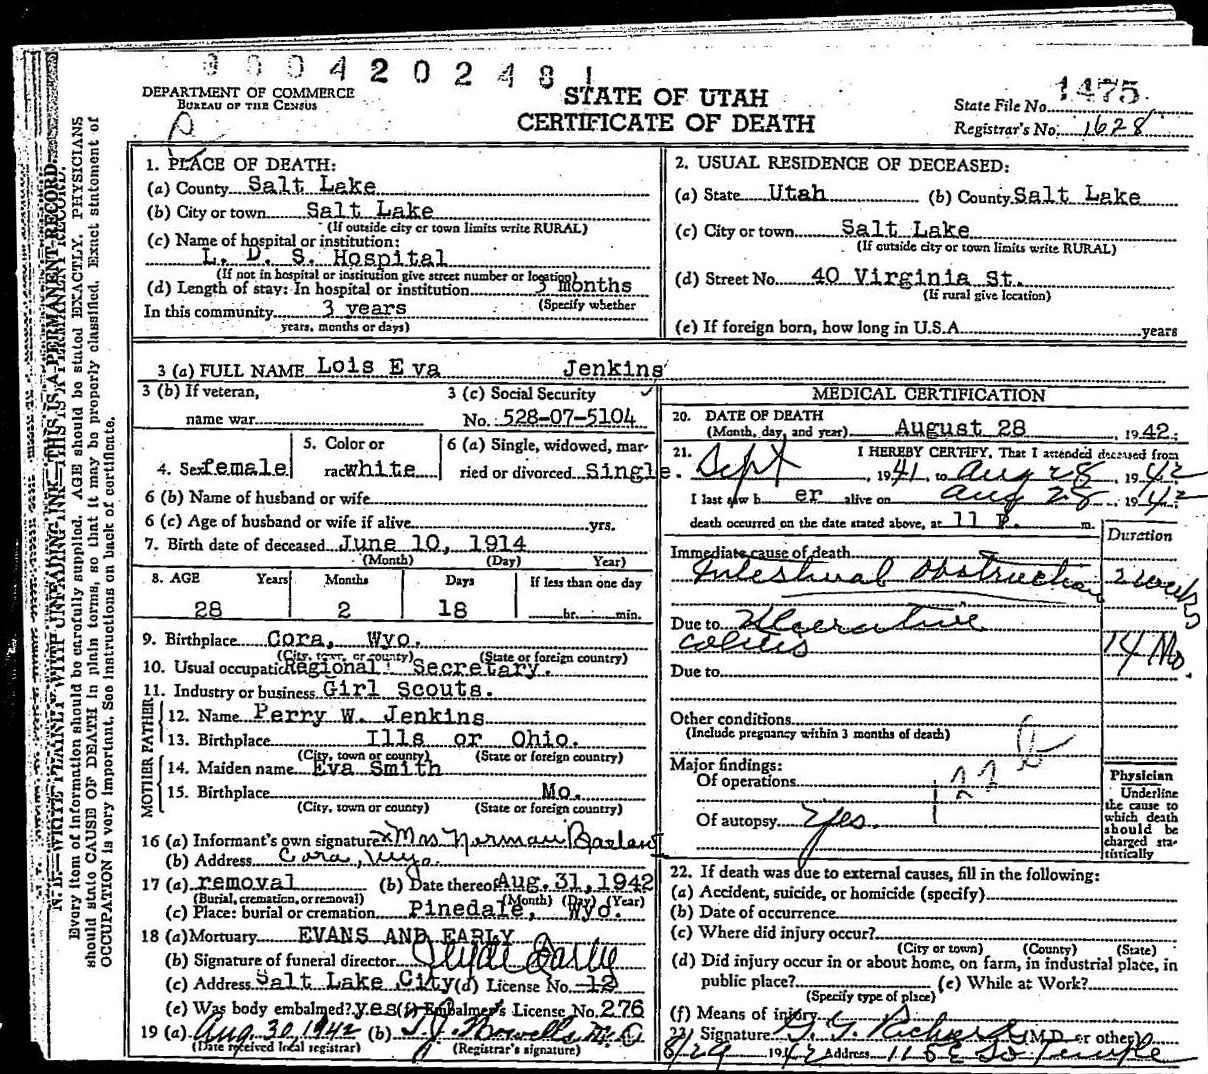 0004202481
DEPARTMENT OF COMMERCE
BUREAU OF THE CENSUS
STATE OF UTAH
CERTIFICATE OF DEATH
State File No. 1475
Registrar's No. 1628
N. B.—WRITE PLAINLY WITH UNFADING INK—THIS IS A PERMANENT RECORD.
Every item of information should be carefully supplied. AGE should be stated EXACTLY. PHYSICIANS
should state CAUSE OF DEATH in plain terms, so that it may be properly classified. Exact statement of
OCCUPATION is very important. See instructions on back of certificate.
1. PLACE OF DEATH:
(a) County Salt Lake
(b) City or town Salt Lake
(If outside city or town limits write RURAL)
(c) Name of hospital or institution:
L. D. S. Hospital
(If not in hospital or institution give street number or location)
(d) Length of stay: In hospital or institution 3 months
(Specify whether
In this community 3 years
years, months or days)
2. USUAL RESIDENCE OF DECEASED:
(a) State Utah (b) County Salt Lake
(c) City or town Salt Lake
(If outside city or town limits write RURAL)
(d) Street No. 40 Virginia St.
(If rural give location)
(e) If foreign born, how long in U.S.A. years
3 (a) FULL NAME Lois Eva Jenkins
3 (b) If veteran,
name war
3 (c) Social Security
No. 528-07-5104
4. Sex female
5. Color or
race white
6 (a) Single, widowed, mar-
ried or divorced Single.
6 (b) Name of husband or wife
6 (c) Age of husband or wife if alive yrs.
7. Birth date of deceased June 10, 1914
(Month) (Day) Year)
8. AGE Years Months Days If less than one day
28 2 18 hr. min.
9. Birthplace Cora, Wyo.
(City, town, or county) (State or foreign country)
10. Usual occupation Regional Secretary.
11. Industry or business Girl Scouts.
FATHER
12. Name Perry W. Jenkins
13. Birthplace Ills or Ohio.
(City, town or county) (State or foreign country)
MOTHER
14. Maiden name Eva Smith
15. Birthplace Mo.
(City, town or county) (State or foreign country)
16 (a) Informant's own signature x Mrs Norman Barlow
(b) Address Cora, Wyo.
17 (a) removal (b) Date thereof Aug. 31, 1942
(Burial, cremation, or removal) (Month) (Day) (Year)
(c) Place: burial or cremation Pinedale, Wyo.
18 (a) Mortuary EVANS AND EARLY
(b) Signature of funeral director Clyde Early
(c) Address Salt Lake City (d) License No. 12
(e) Was body embalmed? yes (f) Embalmer's License No. 276
19 (a) Aug. 30, 1942 (b) T. J. Howells M.D.
(Date received local registrar) (Registrar's signature)
MEDICAL CERTIFICATION
20. DATE OF DEATH
(Month, day, and year) August 28, 1942.
21. I HEREBY CERTIFY, That I attended deceased from
Sept, 1941, to Aug 28, 1942
I last saw h er alive on Aug 28, 1942
death occurred on the date stated above, at 11 P. m.
Duration
Immediate cause of death
Intestinal Obstruction 2 weeks
Due to Ulcerative
colitis 14 Mo.
Due to
Other conditions
(Include pregnancy within 3 months of death)
Major findings:
Of operations
Of autopsy Yes.
Physician
Underline
the cause to
which death
should be
charged sta-
tistically
22. If death was due to external causes, fill in the following:
(a) Accident, suicide, or homicide (specify)
(b) Date of occurrence
(c) Where did injury occur?
(City or town) (County) (State)
(d) Did injury occur in or about home, on farm, in industrial place, in
public place? (e) While at Work?
(Specify type of place)
(f) Means of injury
23. Signature G. G. Richards (M.D. or other)
8/29 1942 Address 115 E So Temple